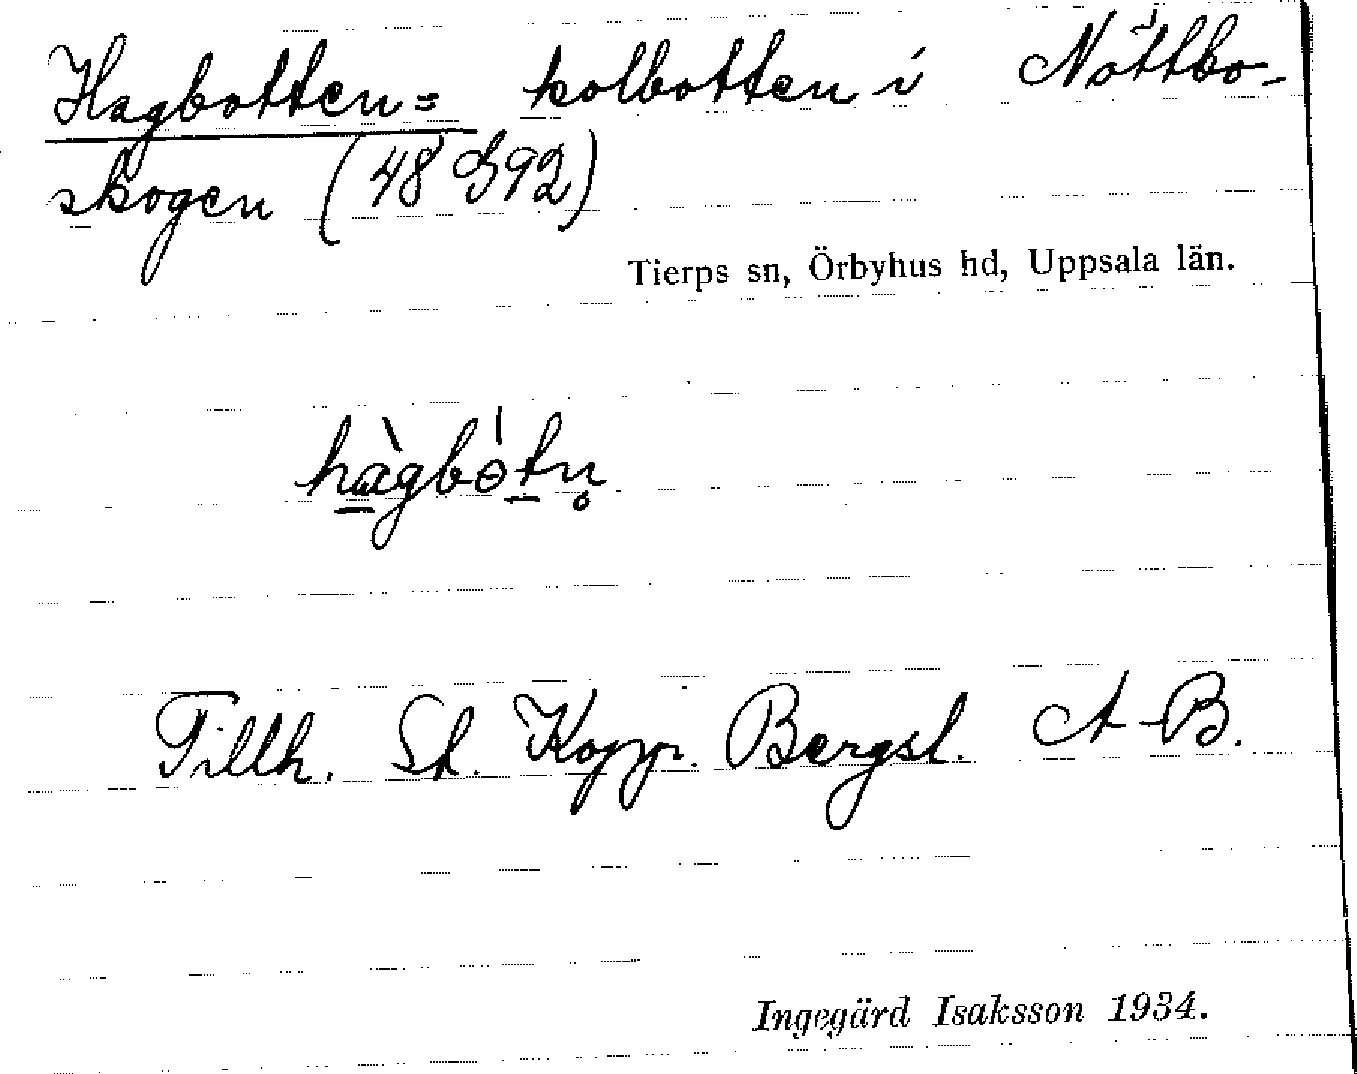 Hagbotten = kolbotten i Nöttbo-
skogen (48 G92)
Tierps sn, Örbyhus hd, Uppsala län.
hàgbɵ́tn̥
Tillh. St. Kopp. Bergsl. A-B.
Ingegärd Isaksson 1934.